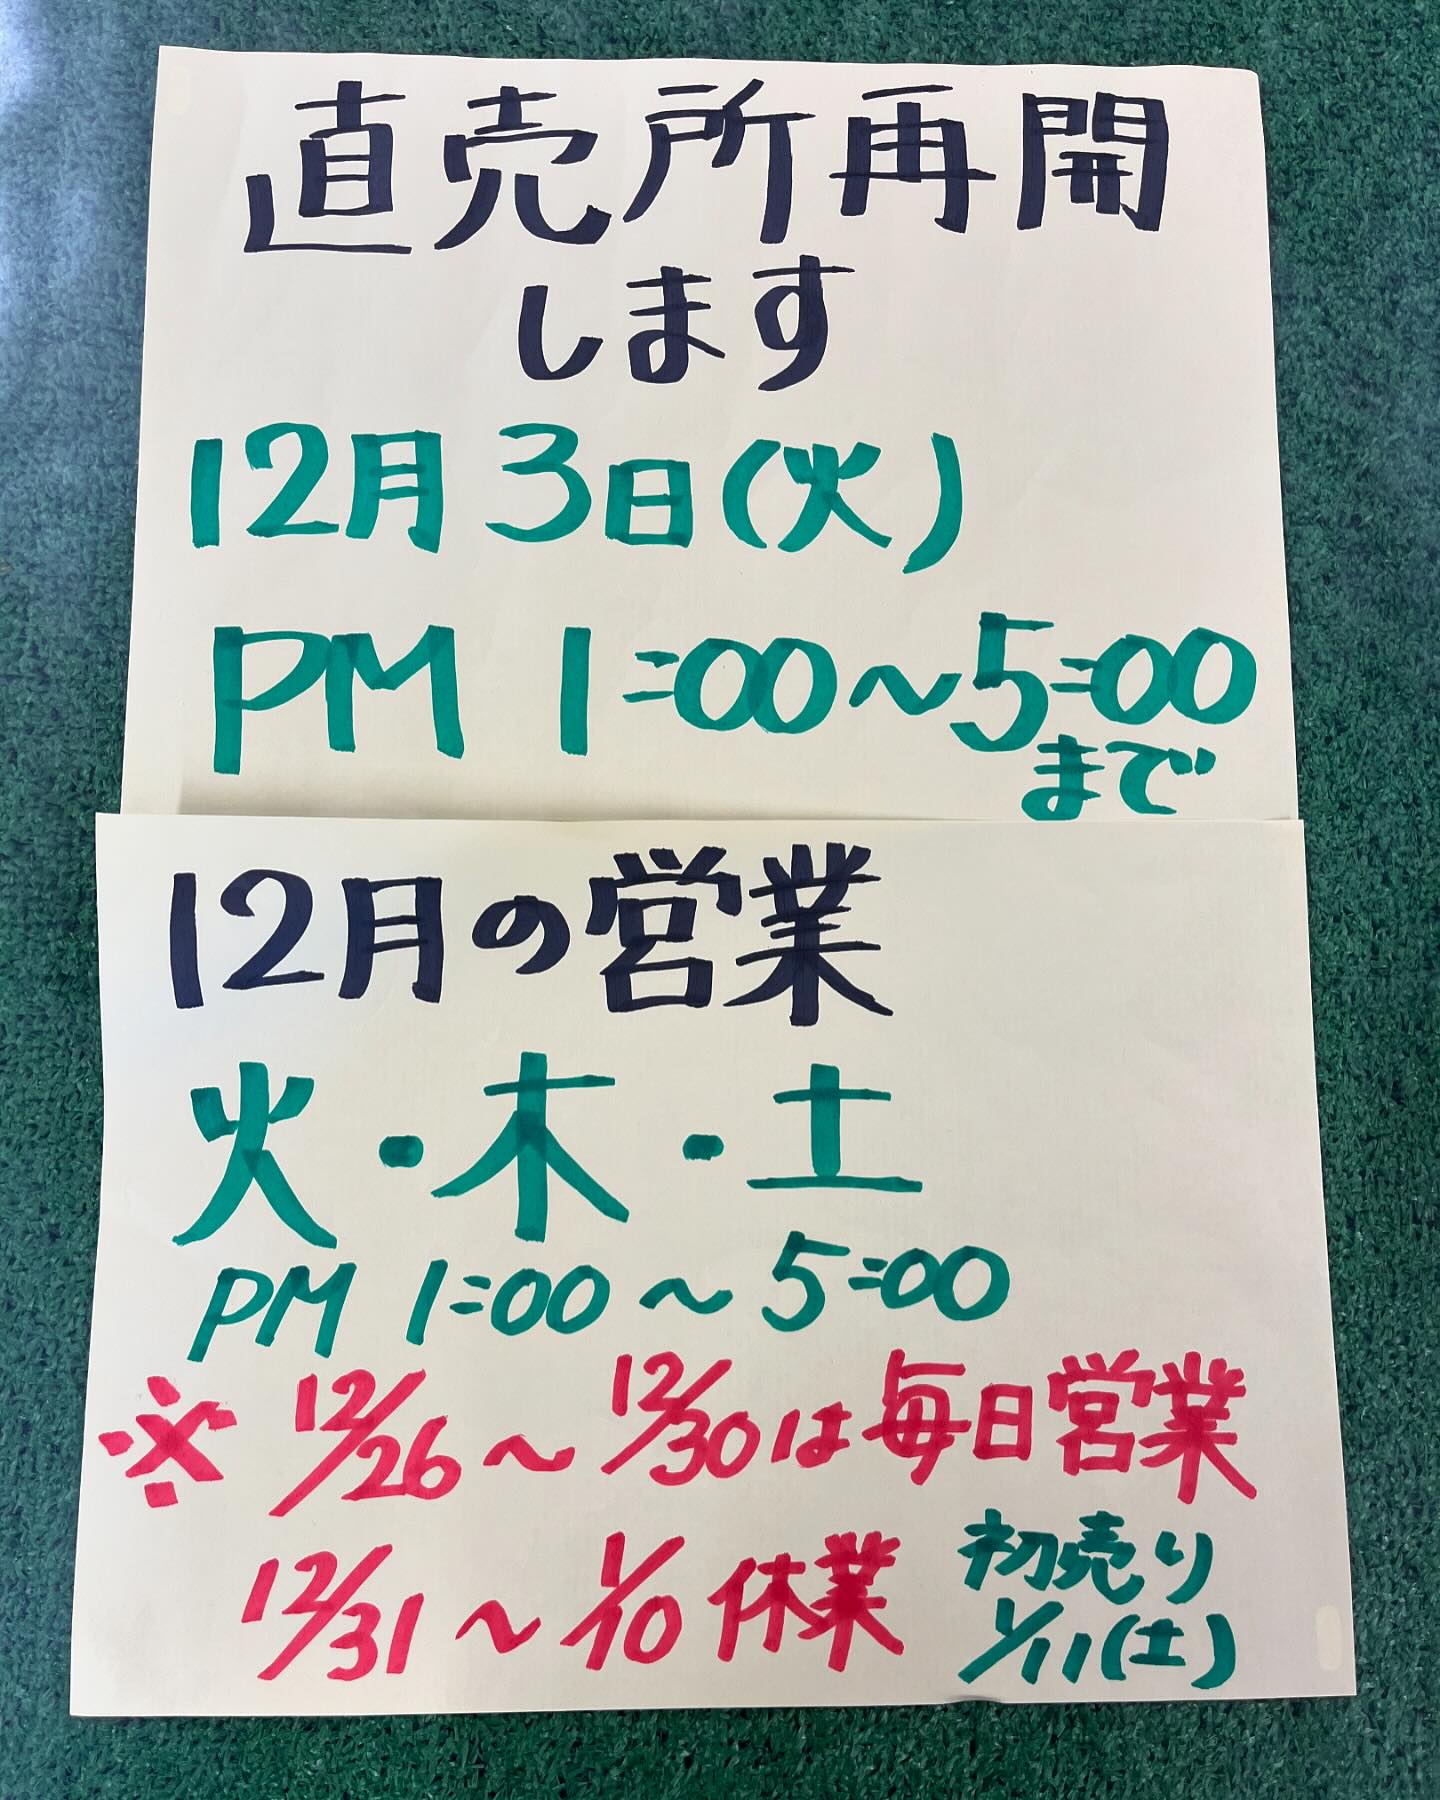 直売所再開
します
12月3日(火)
PM 1:00〜5:00
まで
12月の営業
火・木・土
PM 1:00〜5:00
※ 12/26〜12/30は毎日営業
12/31〜1/10休業
初売り
1/11(土)